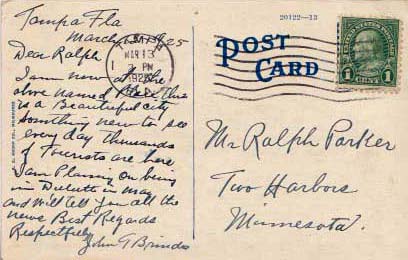 Tampa Fla
March 13 1925
Dear Ralph
I am now at the
above named Place this
is a Beautiful city
something new to see
every day thousands
of Tourists are here
I am Planing on being
in Duluth in May
and will tell you all the
news Best Regards
Respectfully
John G Brindos
TAMPA
MAR 13
PM
1925
20122-13
POST
CARD
UNITED STATES POSTAGE
1 CENT 1
Mr Ralph Parker
Two Harbors
Minnesota.